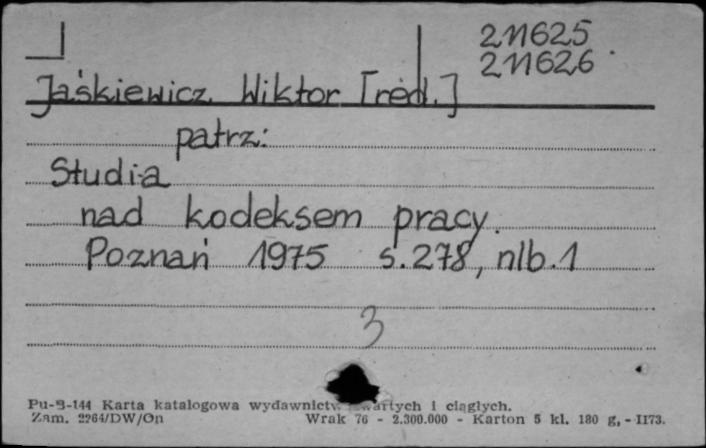 211625
211626
Jaśkiewicz Wiktor [red.]
patrz:
Studia
nad kodeksem pracy.
Poznań 1975 s.278, nlb.1
3
Pu-B-144 Karta katalogowa wydawnictw zwartych i ciągłych.
Zam. 2264/DW/On Wrak 76 - 2.300.000 - Karton 5 kl. 180 g, - II73.